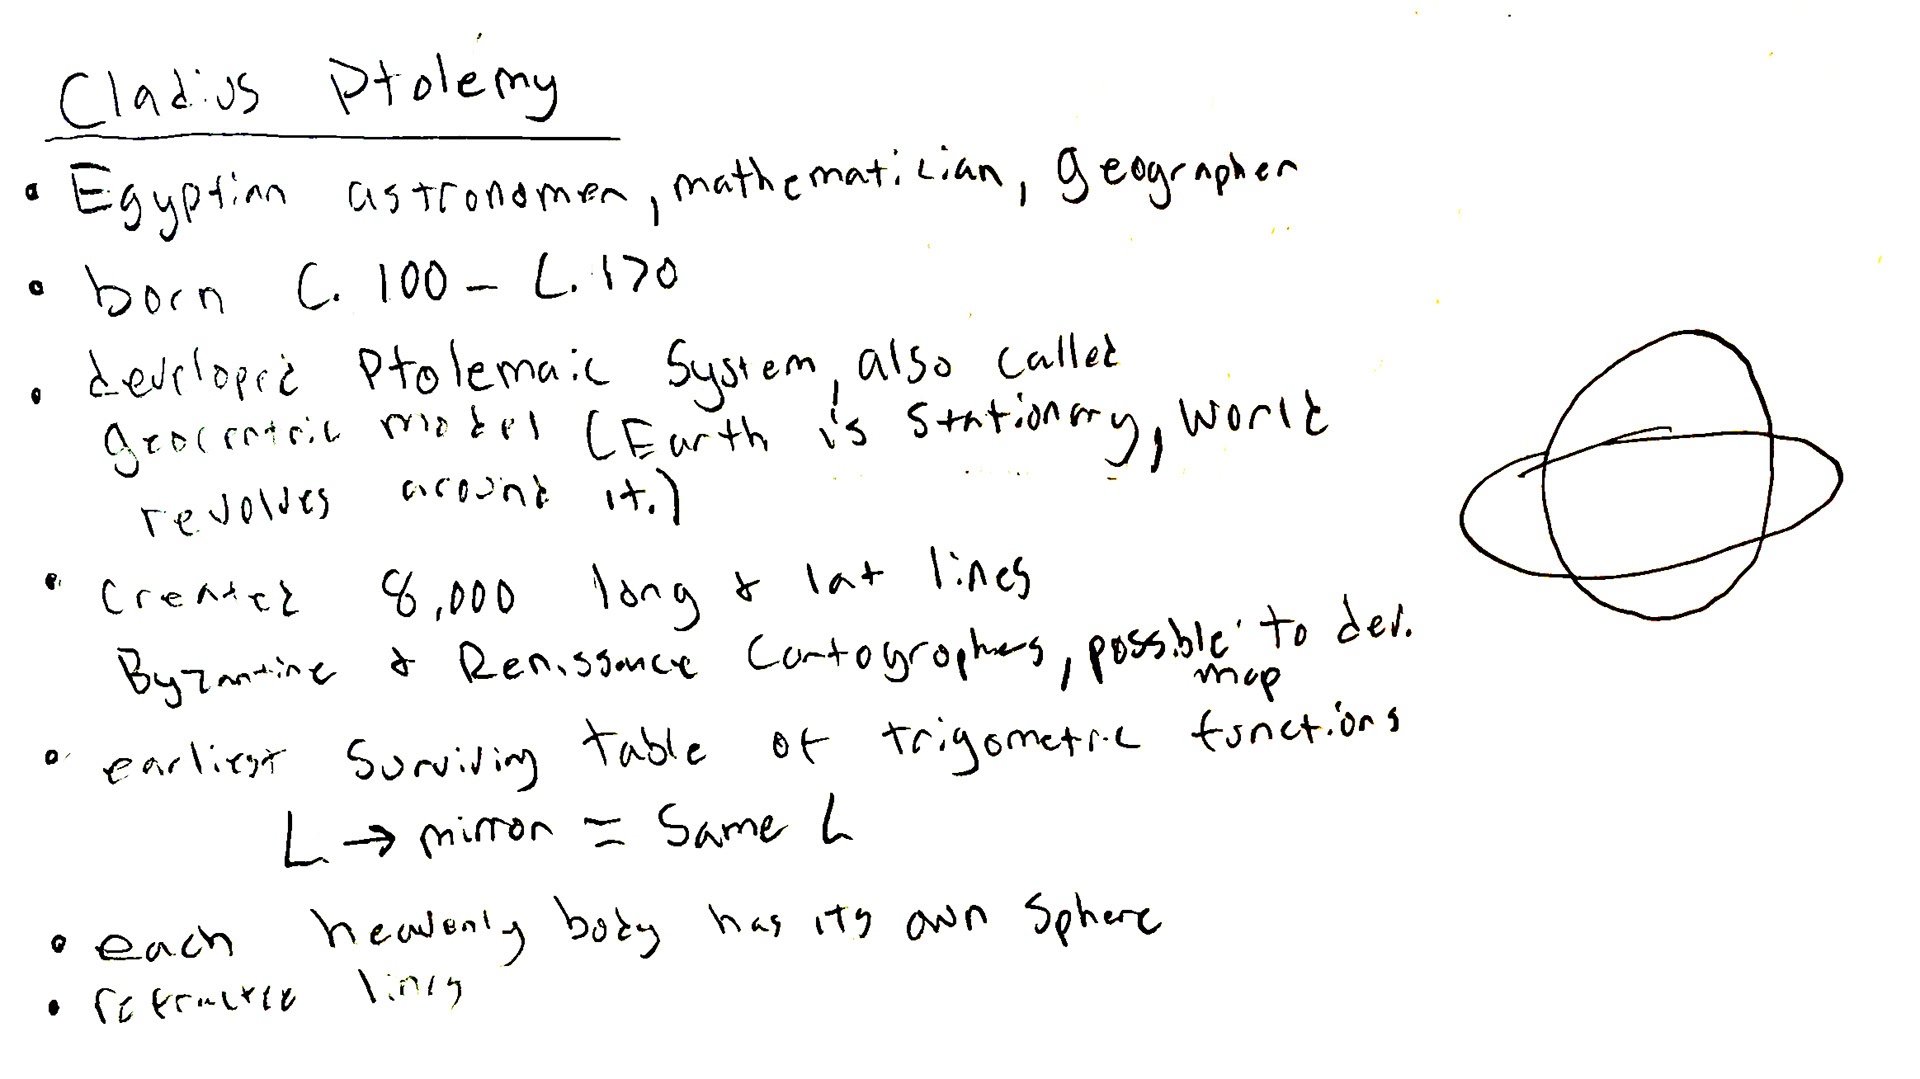 Cladius Ptolemy
• Egyptian astronomer, mathematician, geographer
• born C. 100 - C. 170
• developed Ptolemaic System, also called
geocentric model (Earth is stationary, world
revolves around it.)
• created 8,000 long & lat lines
Byzantine & Renissance Cartographers, possible to dev.
map
• earliest surviving table of trigometric functions
L → mirror = Same L
• each heavenly body has its own sphere
• refracted lines